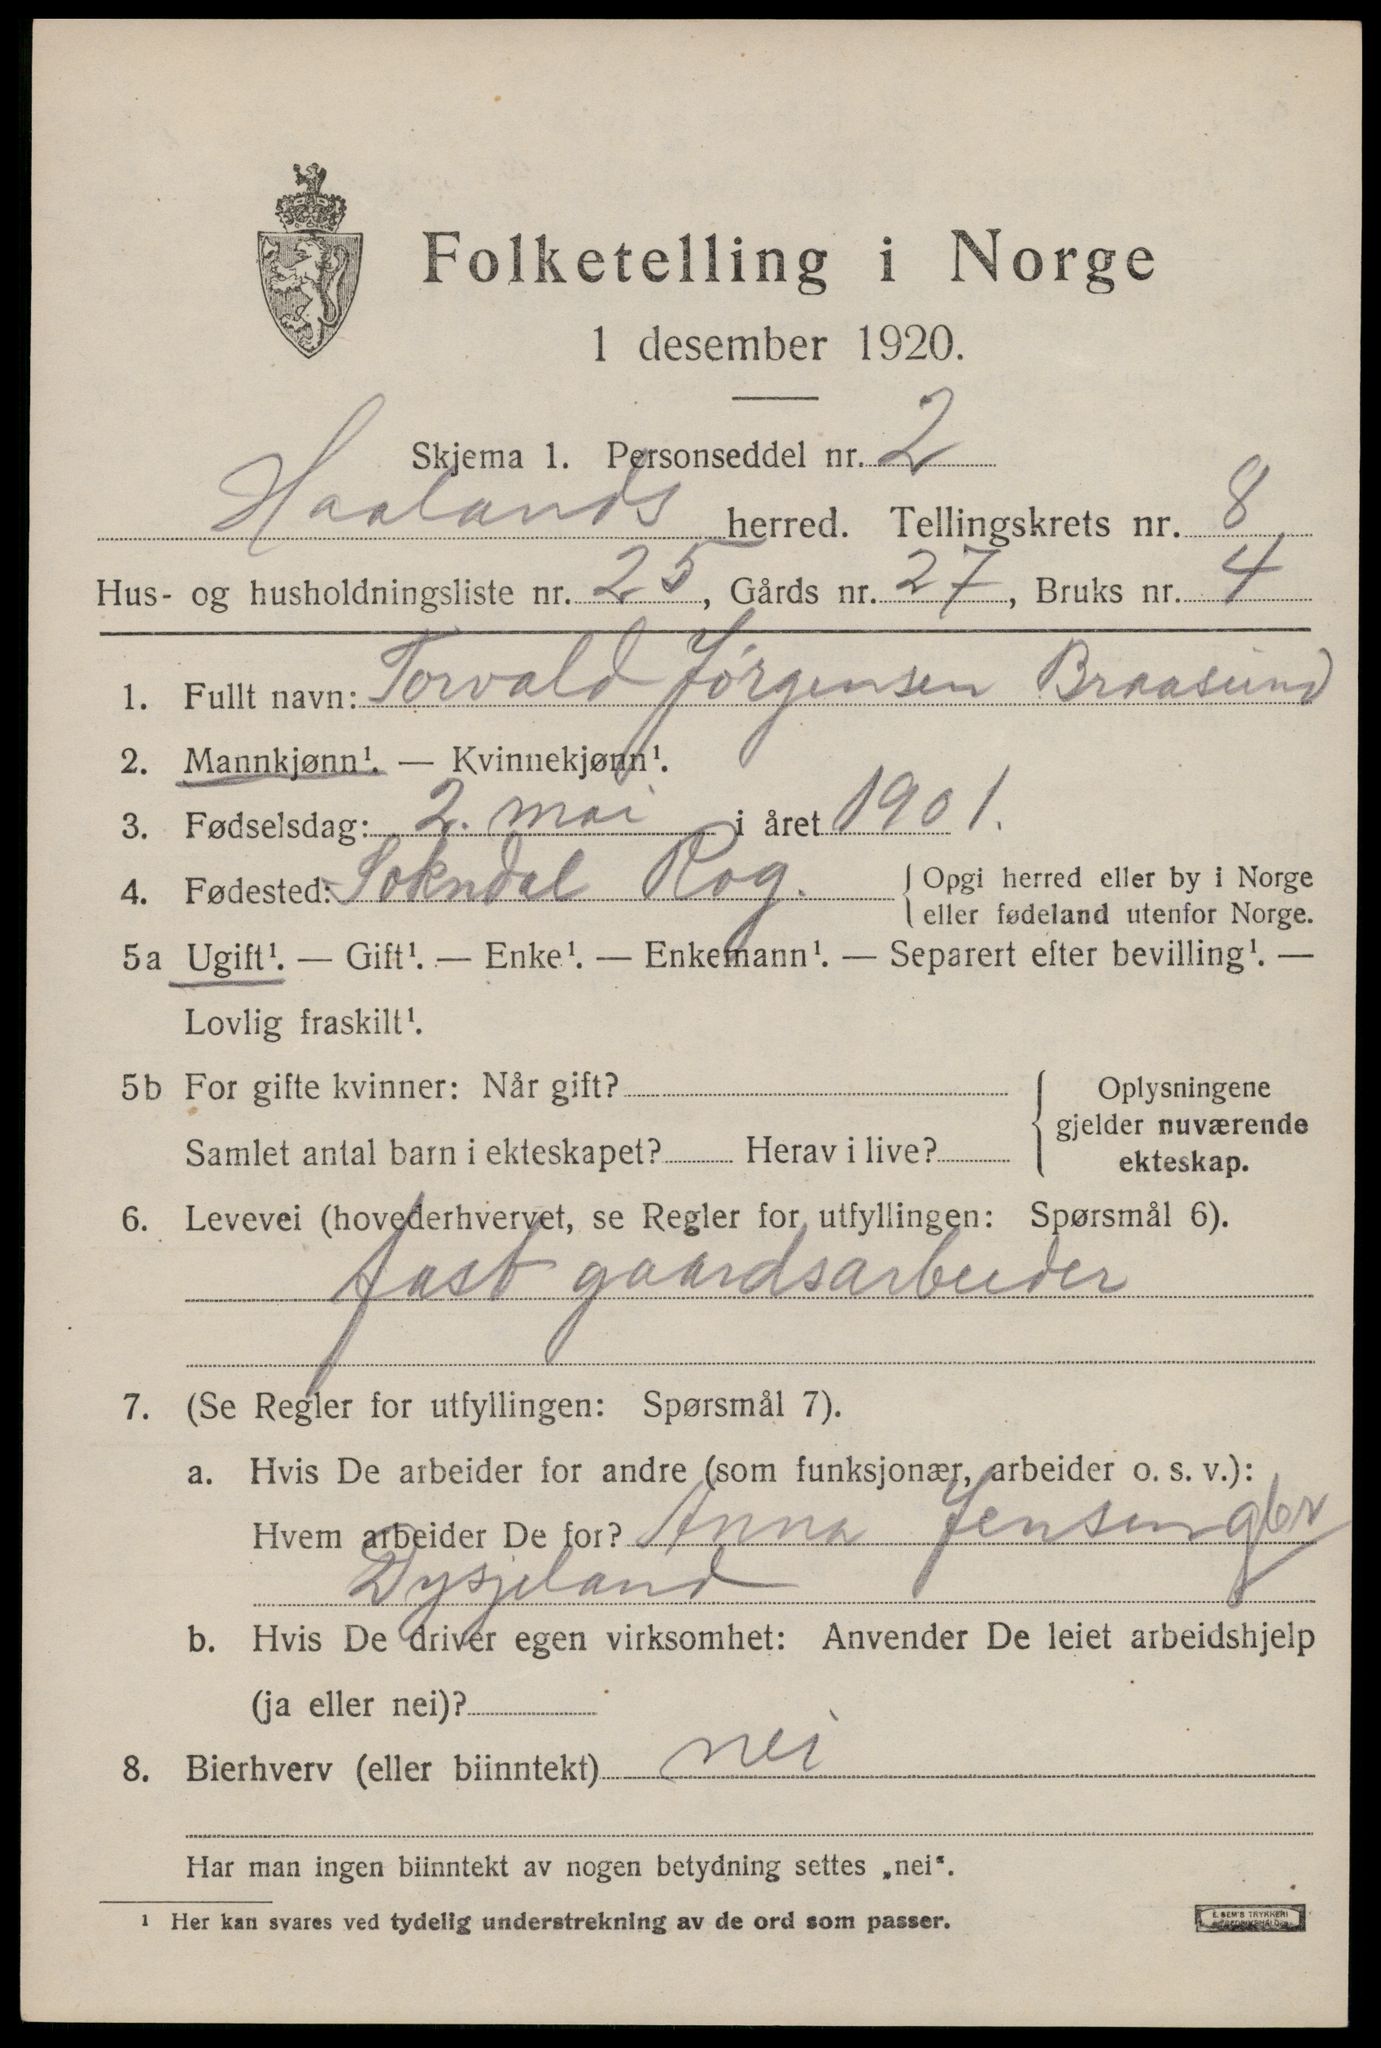 Folketelling i Norge
1 desember 1920.
Skjema 1. Personseddel nr. 2
Haalands herred. Tellingskrets nr. 8
Hus- og husholdningsliste nr. 25, Gårds nr. 27, Bruks nr. 4
1. Fullt navn: Torvald Jørgensen Braasund
2. Mannkjønn¹. — Kvinnekjønn¹.
3. Fødselsdag: 2. mai i året 1901.
4. Fødested: Sokndal Rog. {Opgi herred eller by i Norge
eller fødeland utenfor Norge.
5a Ugift¹. — Gift¹. — Enke¹. — Enkemann¹. — Separert efter bevilling¹. —
Lovlig fraskilt¹.
5b For gifte kvinner: Når gift?
Samlet antal barn i ekteskapet? Herav i live?
Oplysningene
gjelder nuværende
ekteskap.
6. Levevei (hovederhvervet, se Regler for utfyllingen: Spørsmål 6).
fast gaardsarbeider
7. (Se Regler for utfyllingen: Spørsmål 7).
a. Hvis De arbeider for andre (som funksjonær, arbeider o. s. v.):
Hvem arbeider De for? Anna Jensen gbr
Dysjeland
b. Hvis De driver egen virksomhet: Anvender De leiet arbeidshjelp
(ja eller nei)?
8. Bierhverv (eller biinntekt) nei
Har man ingen biinntekt av nogen betydning settes „nei“.
¹ Her kan svares ved tydelig understrekning av de ord som passer.
E. SEM'S TRYKKERI
FREDRIKSHALD